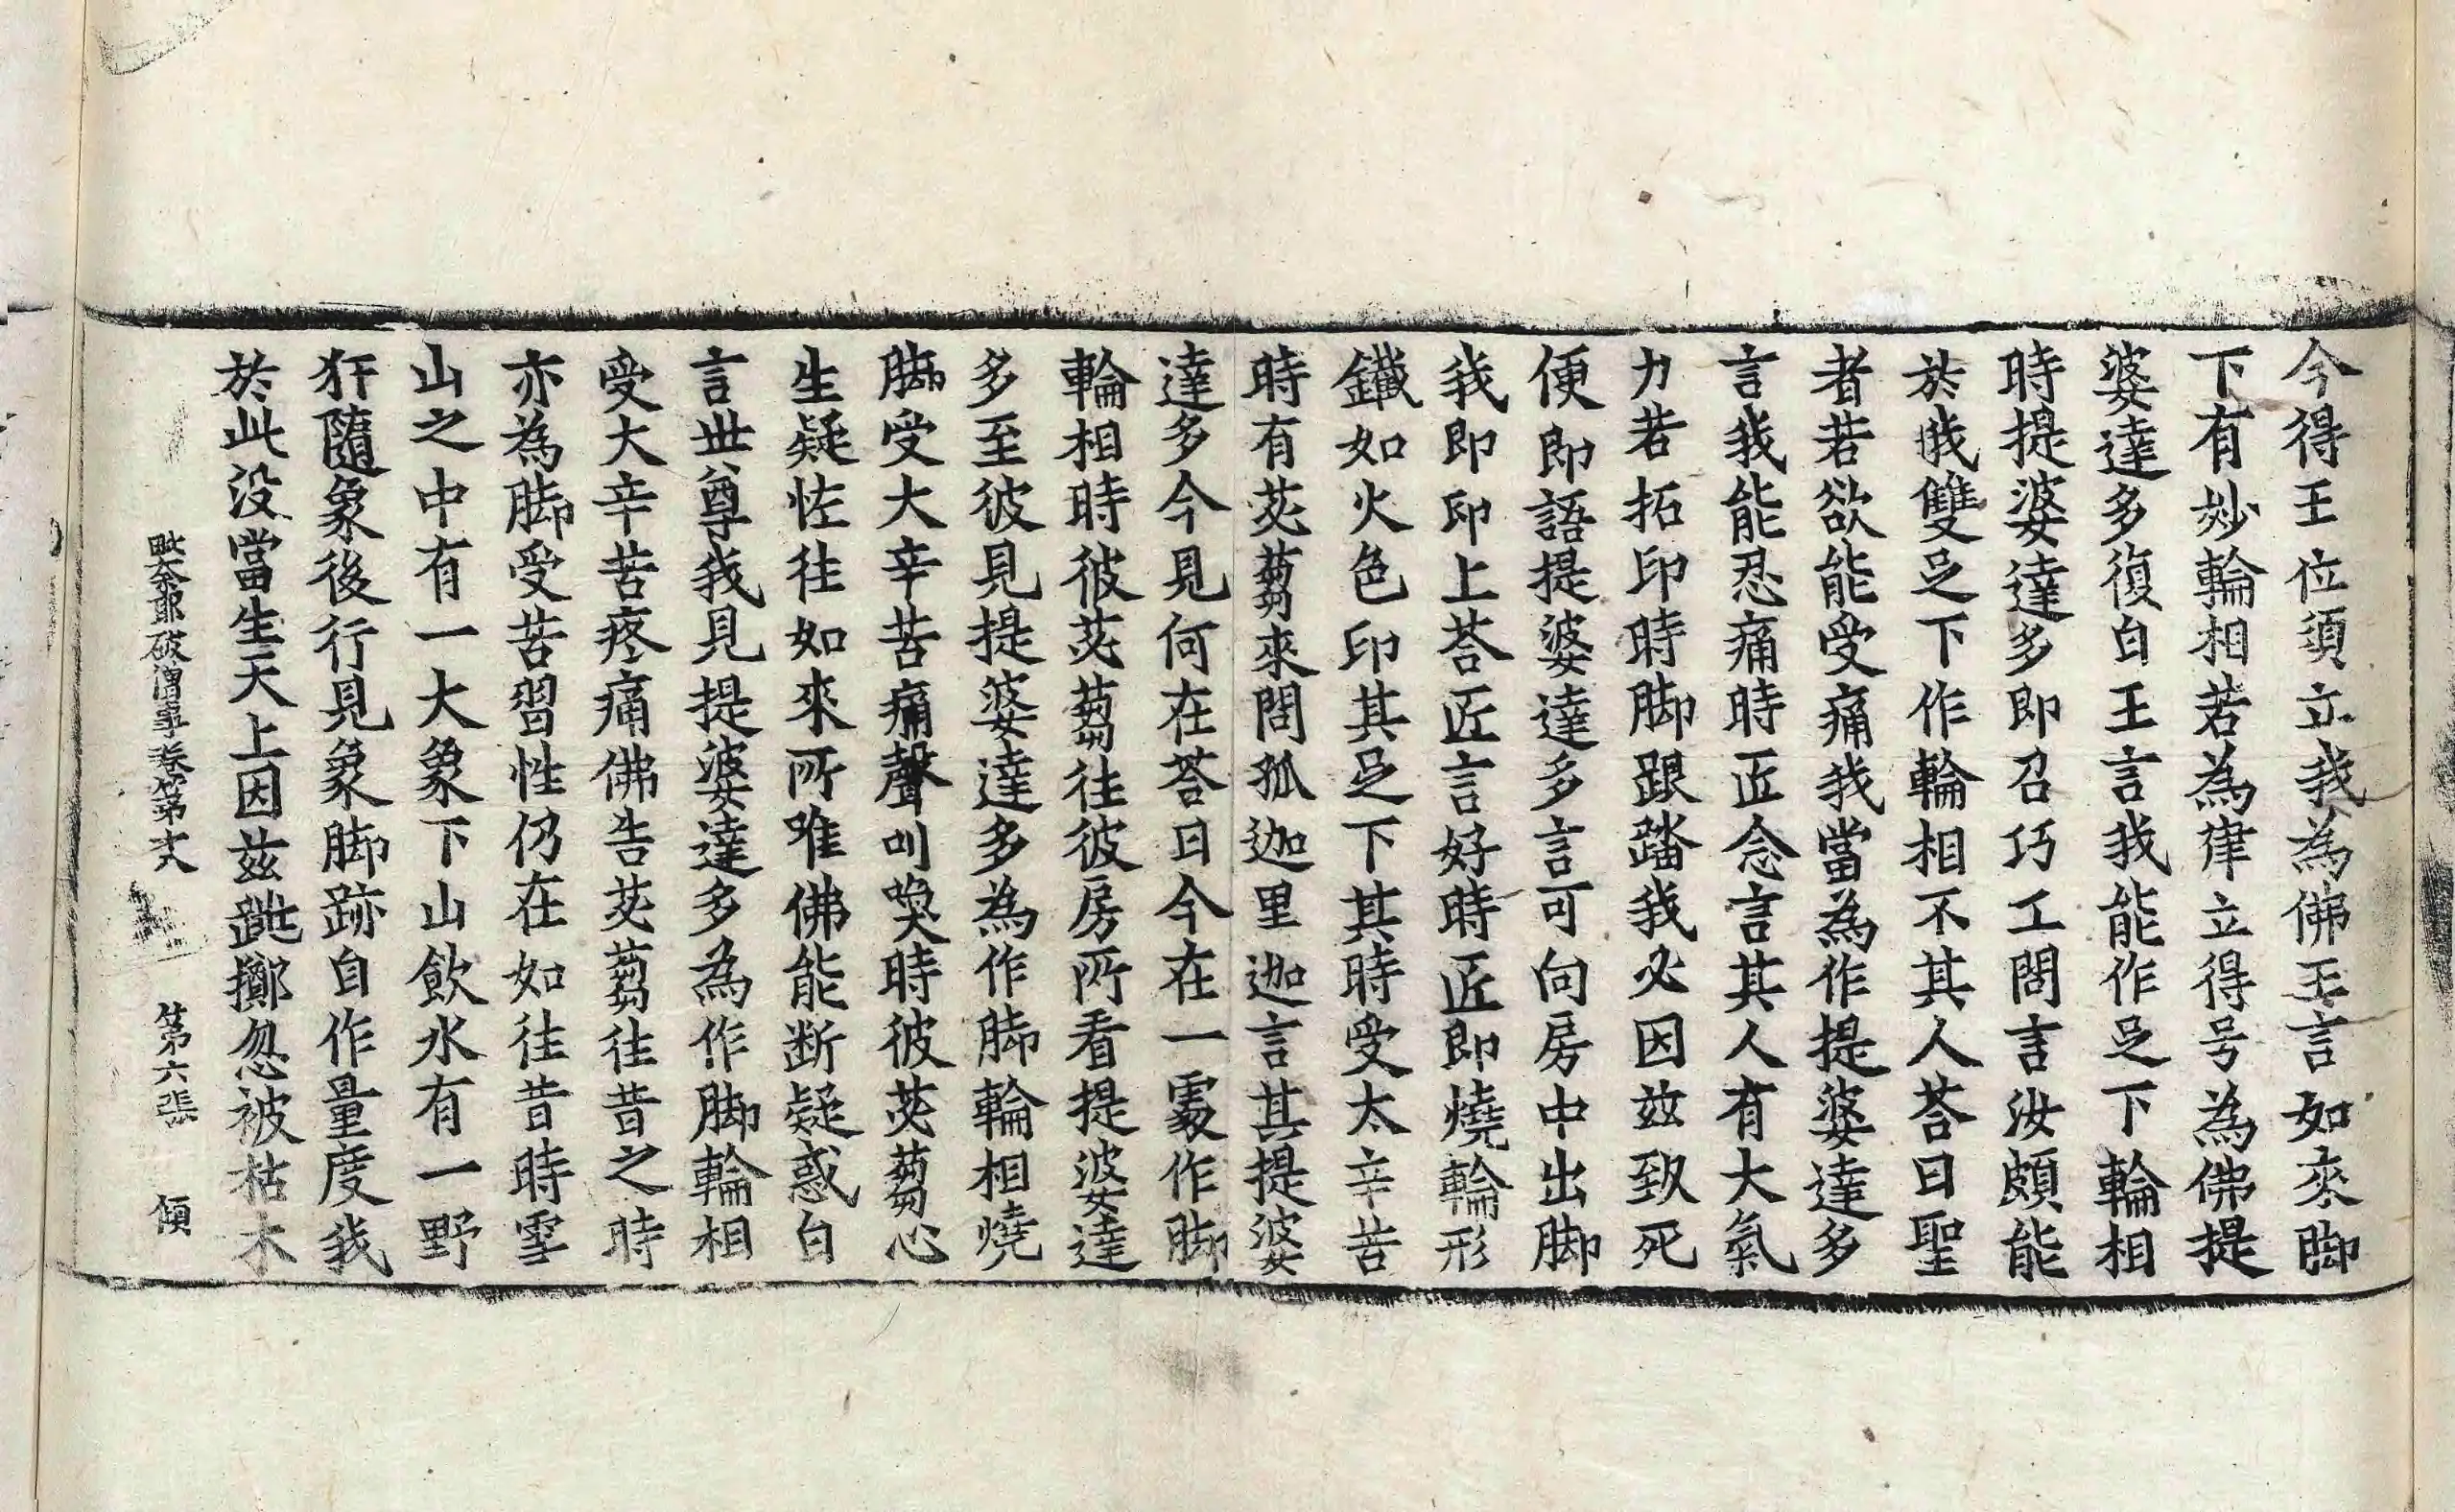 今得王位須立我為佛王言如來脚
下有妙輪相若為肂立得号為佛提
婆達多復白王言我能作足下輪相
時提婆達多即召巧工問言汝頗能
於我雙足之下作輪相不其人荅曰聖
者若欲能受痛我當為作提婆達多
言我能忍痛時匠念言其人有大氣
力若拓印時脚跟踏我必因兹致死
便即語提婆達多言可向房中出脚
我即印上荅匠言好時匠即燒輪形
鐵如火色印其足下其時受太辛苦
時有苾蒭來問孤迦里迦言其提婆
達多今見何在荅曰今在一處作脚
輪相時彼苾蒭往彼房所看提婆達
多至彼見提婆達多為作脚輪相燒
脚受大辛苦痛聲叫喚時彼苾蒭心
生疑恠往如來所唯佛能断疑惑白
言世尊我見提婆達多為作脚輪相
受大辛苦疼痛佛告苾蒭往昔之時
亦為脚受苦習性仍在如往昔時雪
山之中有一大象下山飲水有一野
犴隨象後行見象脚跡自作量度我
於此没當生天上因兹跳擲忽被枯木
毗奈耶破僧事卷第十八 第六張 傾